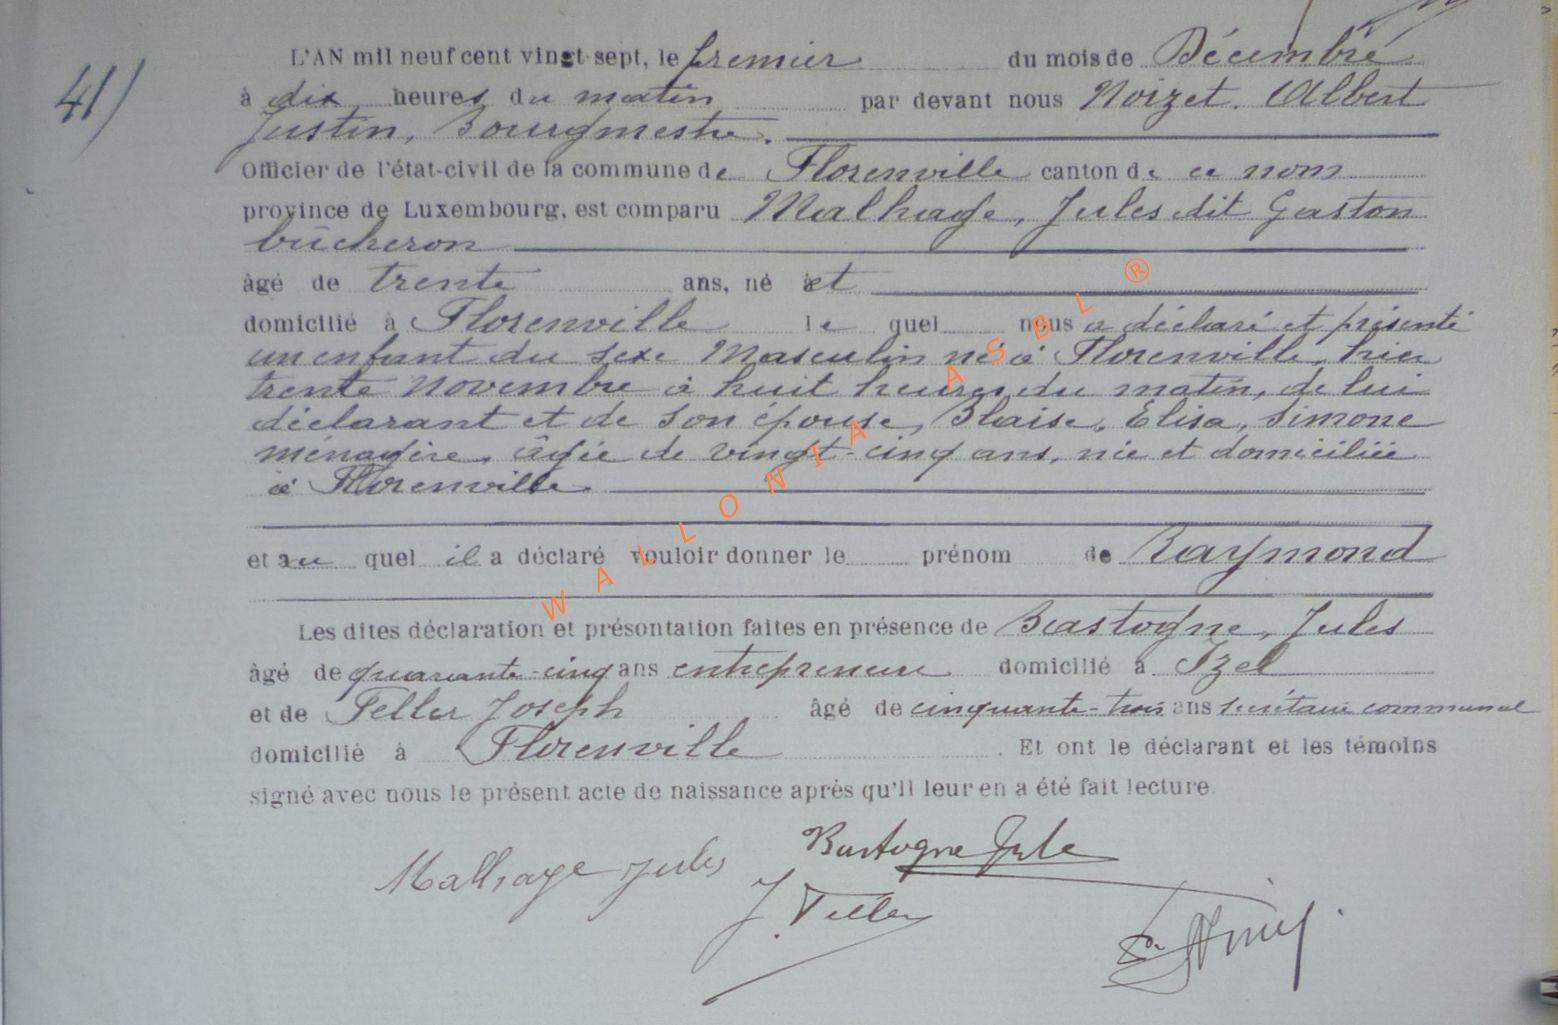 41)
L'AN mil neuf cent vingt-sept, le premier du mois de Décembre
à dix heures du matin par devant nous Noizet. Albert
Justin, Bourgmestre.
Officier de l'état-civil de la commune de Florenville canton de ce nom
province de Luxembourg, est comparu Malhage, Jules dit Gaston
bûcheron
âgé de trente ans, né et
domicilié à Florenville le quel nous a déclaré et présenté
un enfant du sexe Masculin né à Florenville, hier
trente Novembre à huit heures du matin, de lui
déclarant et de son épouse, Blaise, Élisa, Simone
ménagère, âgée de vingt-cinq ans, née et domiciliée
à Florenville.
et au quel il a déclaré vouloir donner le prénom de Raymond
Les dites déclaration et présontation faites en présence de Bastogne, Jules
âgé de quarante-cinq ans entrepreneur domicilié à Izel
et de Feller Joseph âgé de cinquante-trois ans secrétaire communal
domicilié à Florenville. Et ont le déclarant et les témoins
signé avec nous le présent acte de naissance après qu'il leur en a été fait lecture.
Malhage Jules Bastogne Jules
J. Feller
WALLONIA ASBL ®